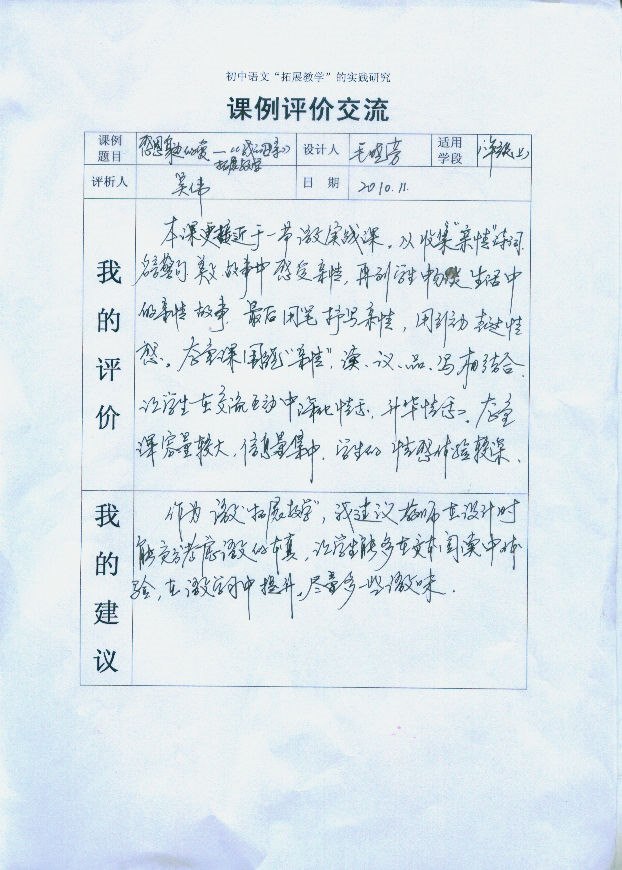 初中语文“拓展教学”的实践研究
课例评价交流
课例题目 感恩 的爱—《我的母亲》拓展教学 设计人 毛 芳 适用学段 八年级(上)
评析人 吴伟 日期 2010.11.
我的评价
本课更接近于一节语文实践课。从收集“亲情”诗词
名言警句、美文故事中感受亲情,再到学生中 生活中
的亲情故事,最后用笔抒写亲情,用行动表达情
感。本堂课围绕“亲情”,读、议、品、写相结合,
让学生在交流互动中深化情感,升华情感。本堂
课容量较大,信息量集中,学生的情感体验较深。
我的建议
作为语文“拓展教学”,我建议教师在设计时
能充分考虑语文的本真,让学生能多在文本阅读中体
验,在语文 中提升,尽量多一些语文味。